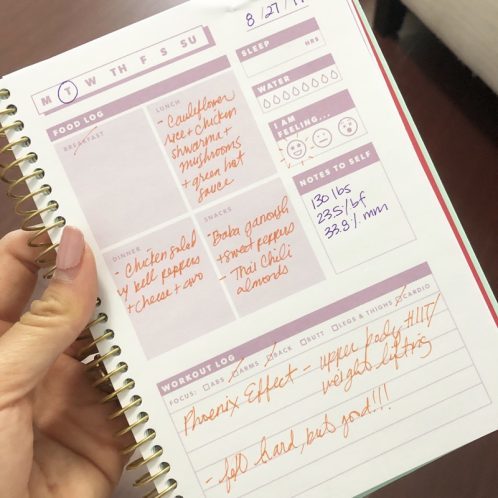 8/27/1
M T W TH F S SU
FOOD LOG
BREAKFAST
LUNCH
- Cauliflower
rice + chicken
shwarma +
mushrooms
+ green hot
sauce
DINNER
- Chicken salad
w/ bell peppers
+ cheese + avo
SNACKS
- Baba ganoush
+ sweet peppers
- Thai Chili
almonds
SLEEP
HRS
WATER
I AM
FEELING...
NOTES TO SELF
130 lbs
23.5% bf
33.9% mm
WORKOUT LOG
FOCUS: ABS ARMS BACK BUTT LEGS & THIGHS CARDIO
Phoenix Effect - upper body HIIT/
weight lifting
- felt hard, but good!!!